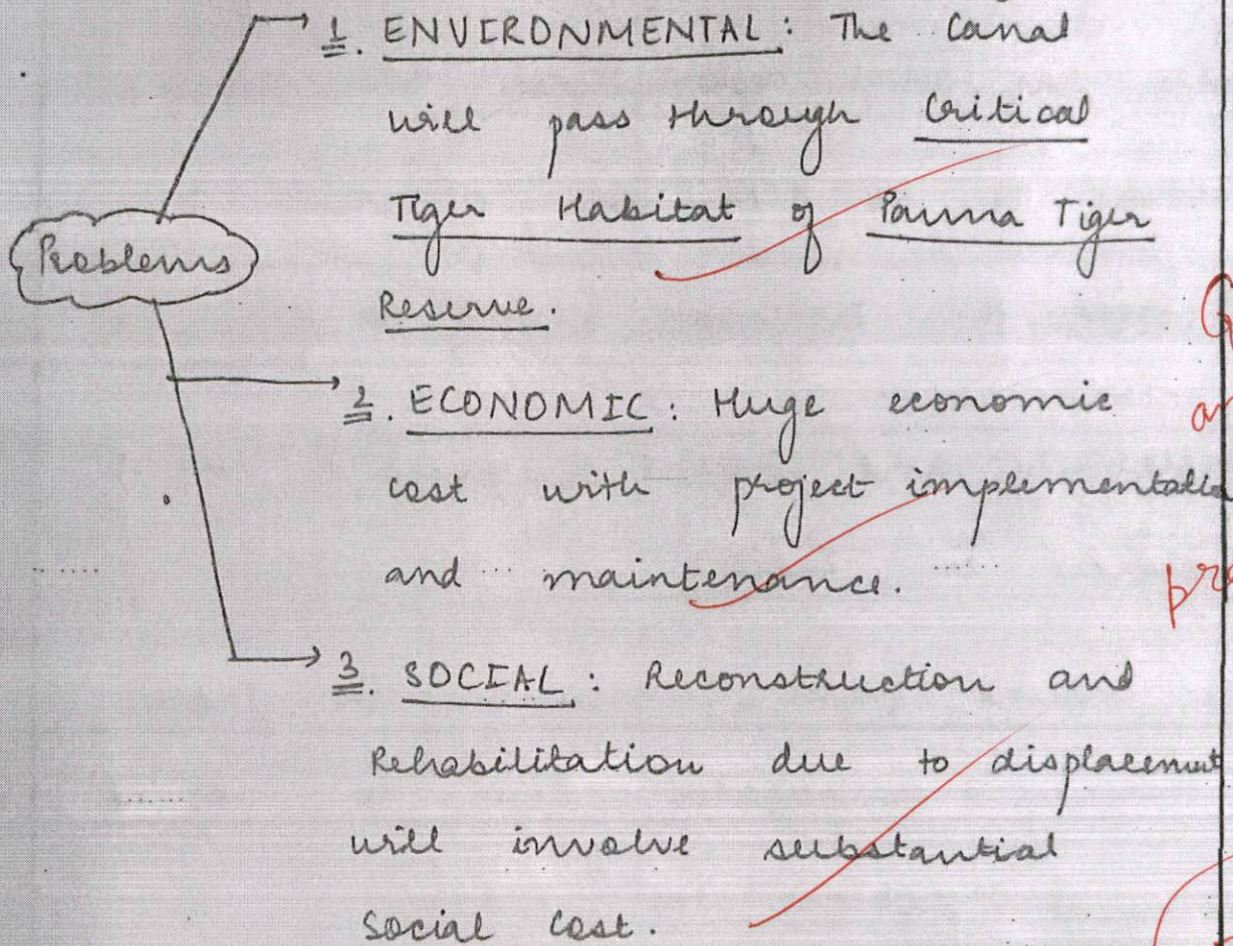 1. ENVIRONMENTAL: The Canal
will pass through Critical
Tiger Habitat of Panna Tiger
Reserve.
Problems
2. ECONOMIC: Huge economic
cost with project implementatio
and maintenance.
3. SOCIAL: Reconstruction and
Rehabilitation due to displacement
will involve substantial
Social Cost.